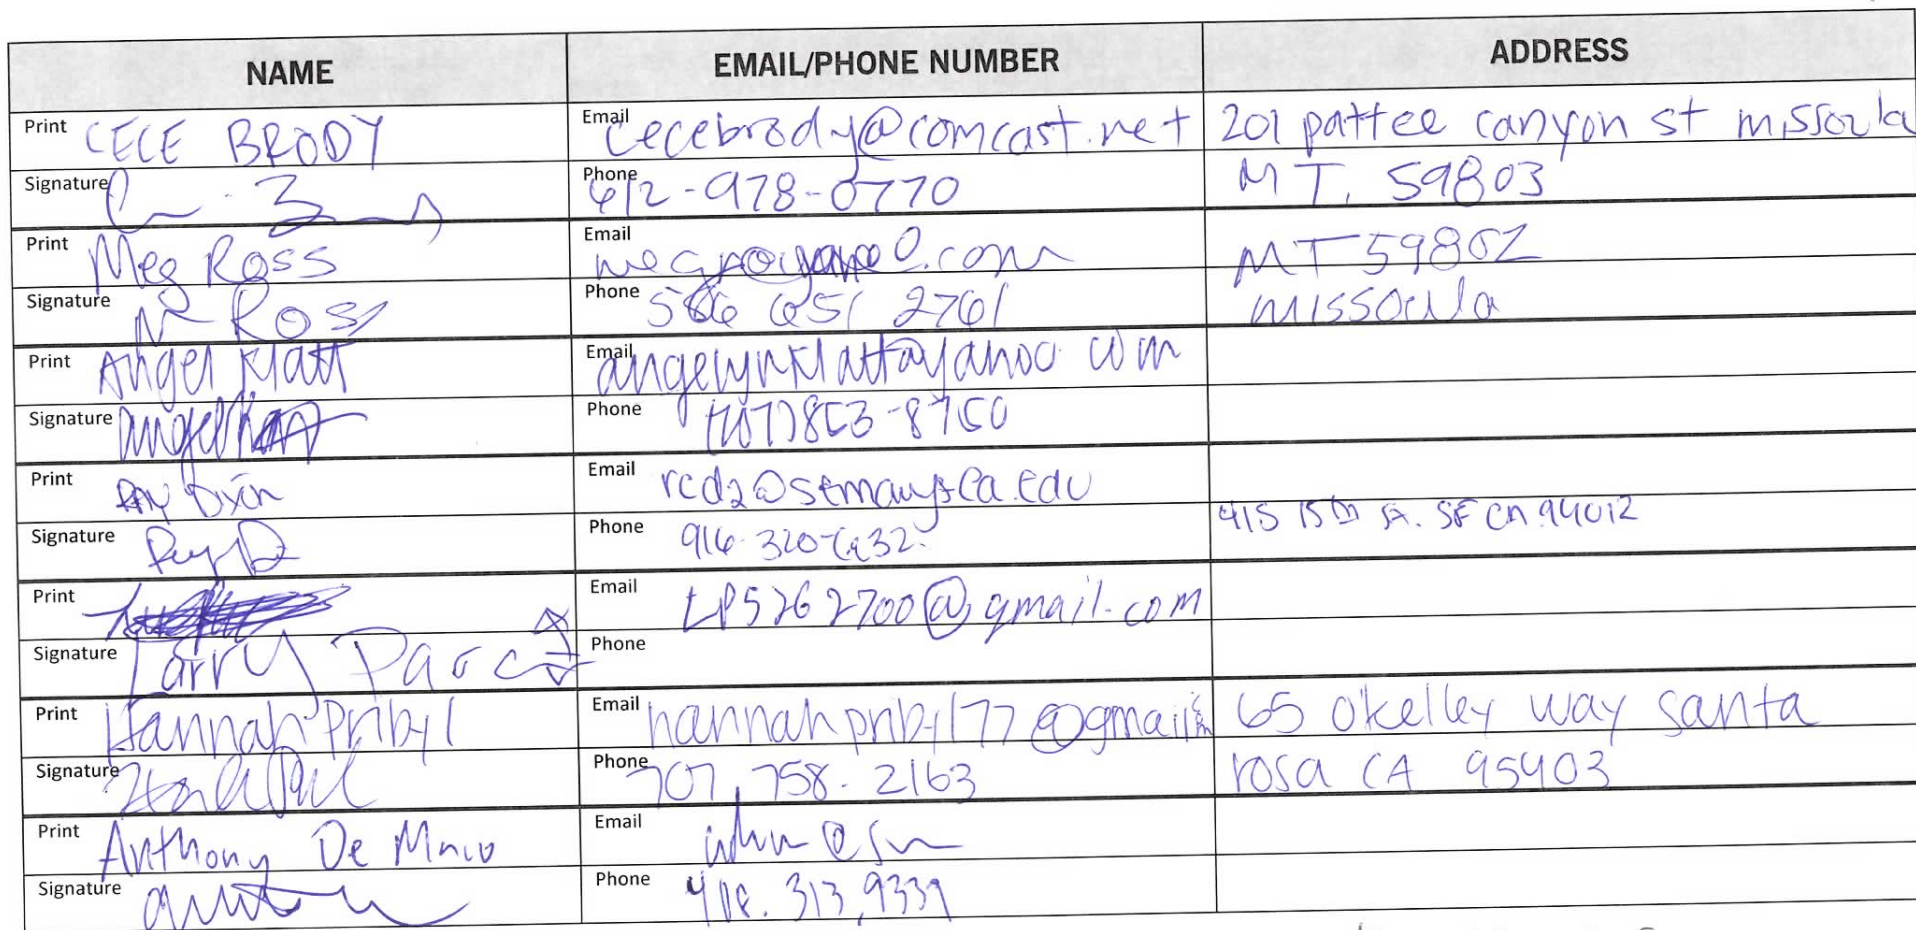 NAME EMAIL/PHONE NUMBER ADDRESS
Print CECE BRODY Email cecebrody@comcast.net 201 pattee canyon st missoula
Signature Phone 612-978-0770 MT. 59803
Print Meg Ross Email MT 59802
Signature M Ross Phone 586 651 2761 missoula
Print Angel Klatt Email angelynklatt@yahoo com
Signature Phone
Print Ray Dixon Email
Signature Phone 415 15th St. SF CA 94012
Print Email LP5262700@gmail.com
Signature Larry Phone
Print Hannah Pribyl Email hannahpribyl77@gmail.com 65 Okelley way santa
Signature Phone 707, 758-2163 rosa CA 95403
Print Anthony De Email
Signature Phone 408. 313,9339